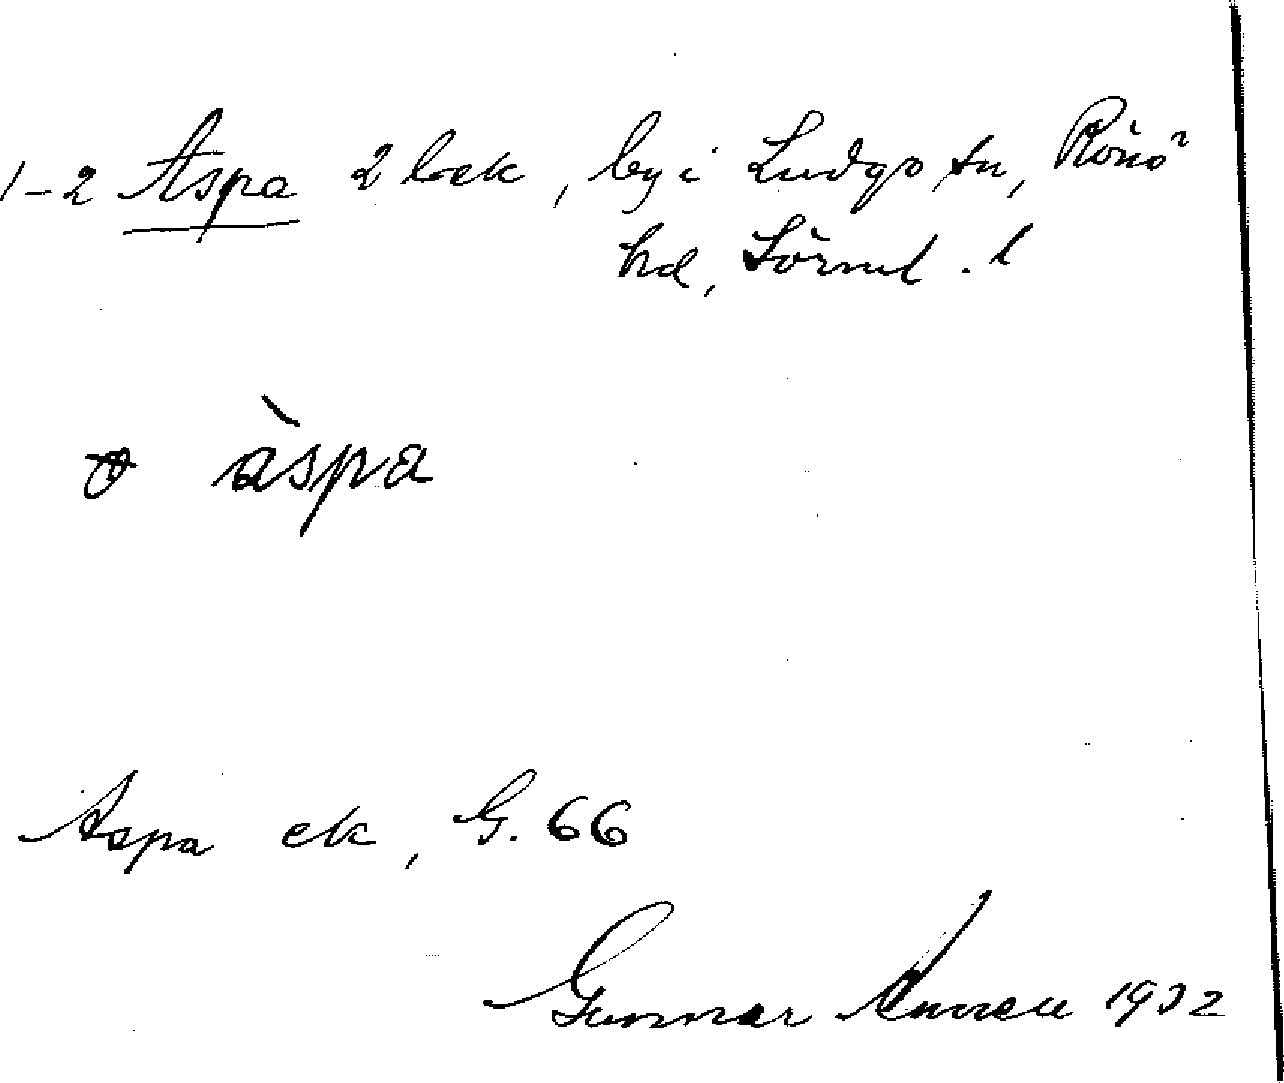 1-2 Aspa 2 bek, by i Ludgo sn, Rönö
hd, Sörml. l
àspa
Aspa ek, G. 66
Gunnar 1932